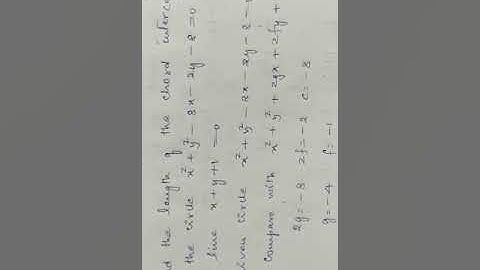 the length of the chord
the circle x² + y² - 8x - 2y - 8 = 0
line x + y + 1 = 0
circle x² + y² - 8x - 2y - 8
compare with x² + y² + 2gx + 2fy +
2g = -8 2f = -2 c = -8
g = -4 f = -1